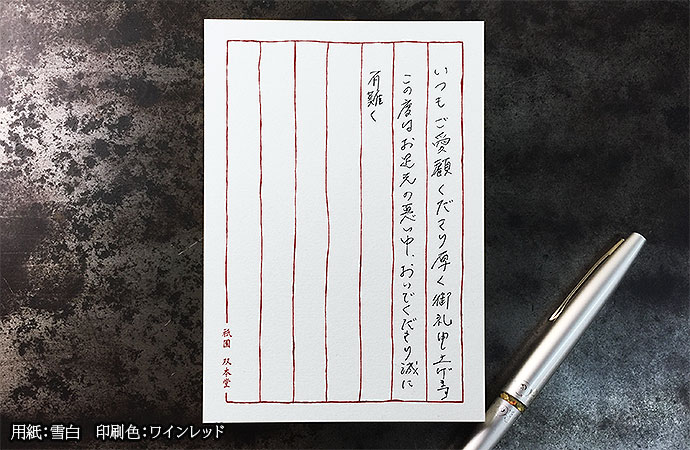 いつもご愛顧くださり厚く御礼申し上げます
この度はお足元の悪い中、おいでくださり誠に
有難く
祇園 双本堂
用紙：雪白　印刷色：ワインレッド